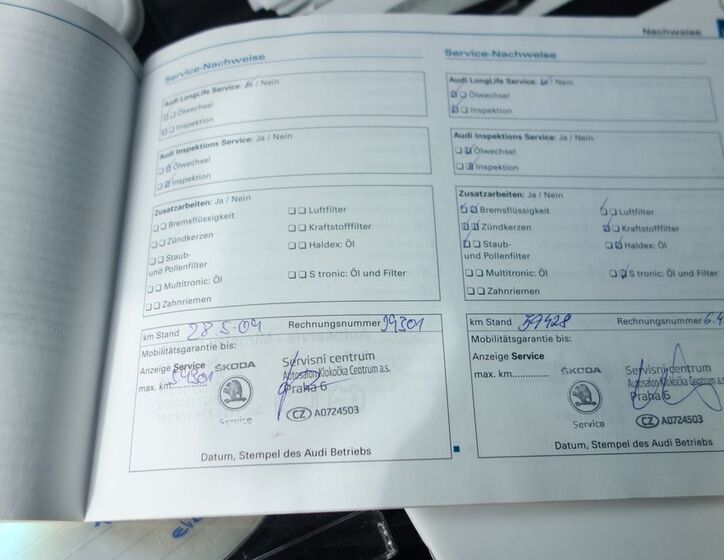 Nachweise
Service-Nachweise
Audi LongLife Service: Ja / Nein
Ölwechsel
Inspektion
Audi Inspektions Service: Ja / Nein
Ölwechsel
Inspektion
Zusatzarbeiten: Ja / Nein
Bremsflüssigkeit
Luftfilter
Zündkerzen
Kraftstofffilter
Staub-
und Pollenfilter
Haldex: Öl
Multitronic: Öl
S tronic: Öl und Filter
Zahnriemen
km Stand 28 5.09 Rechnungsnummer 29301
Mobilitätsgarantie bis:
Anzeige Service
max. km
ŠKODA
Service
Servisní centrum
Autosalon Klokočka Centrum a.s.
Praha 6
CZ A0724503
Datum, Stempel des Audi Betriebs
Service-Nachweise
Audi LongLife Service: / Nein
Ölwechsel
Inspektion
Audi Inspektions Service: Ja / Nein
Ölwechsel
Inspektion
Zusatzarbeiten: Ja / Nein
Bremsflüssigkeit
Luftfilter
Zündkerzen
Kraftstofffilter
Staub-
und Pollenfilter
Haldex: Öl
Multitronic: Öl
S tronic: Öl und Filter
Zahnriemen
km Stand 59428 Rechnungsnummer 6.4
Mobilitätsgarantie bis:
Anzeige Service
max. km..............
ŠKODA
Service
Servisní centrum
Autosalon Klokočka Centrum a.s.
Praha 6
CZ A0724503
Datum, Stempel des Audi Betriebs